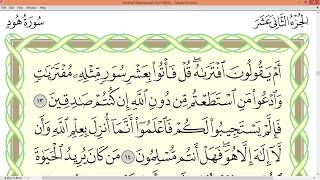 الجزء الثاني عشر
سورة هود
أَمْ يَقُولُونَ ٱفْتَرَىٰهُ ۖ قُلْ فَأْتُوا۟ بِعَشْرِ سُوَرٍ مِّثْلِهِۦ مُفْتَرَيَٰتٍ
وَٱدْعُوا۟ مَنِ ٱسْتَطَعْتُم مِّن دُونِ ٱللَّهِ إِن كُنتُمْ صَٰدِقِينَ ١٣
فَإِلَّمْ يَسْتَجِيبُوا۟ لَكُمْ فَٱعْلَمُوٓا۟ أَنَّمَآ أُنزِلَ بِعِلْمِ ٱللَّهِ وَأَن
لَّآ إِلَٰهَ إِلَّا هُوَ ۖ فَهَلْ أَنتُم مُّسْلِمُونَ ١٤ مَن كَانَ يُرِيدُ ٱلْحَيَوٰةَ